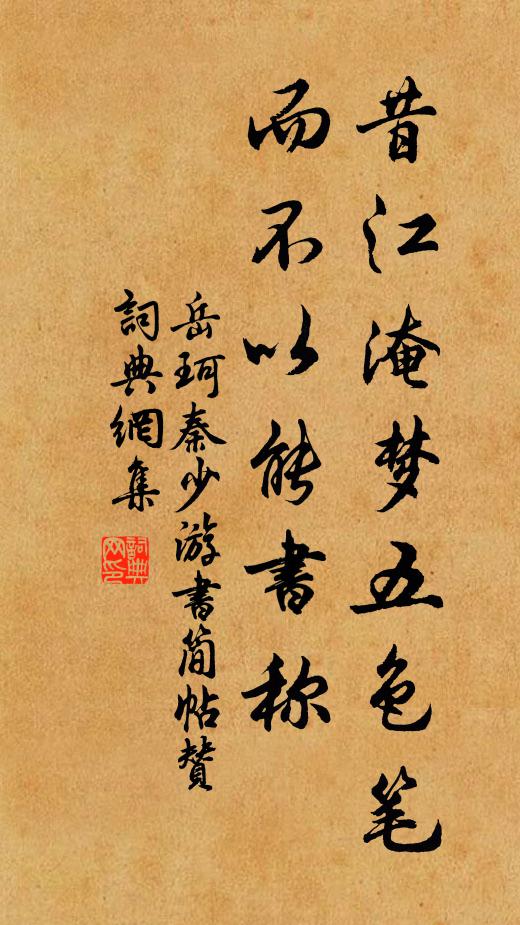 昔江淹梦五色笔
而不以能書称
岳珂秦少游書简帖賛
詞典網集
詞典网印